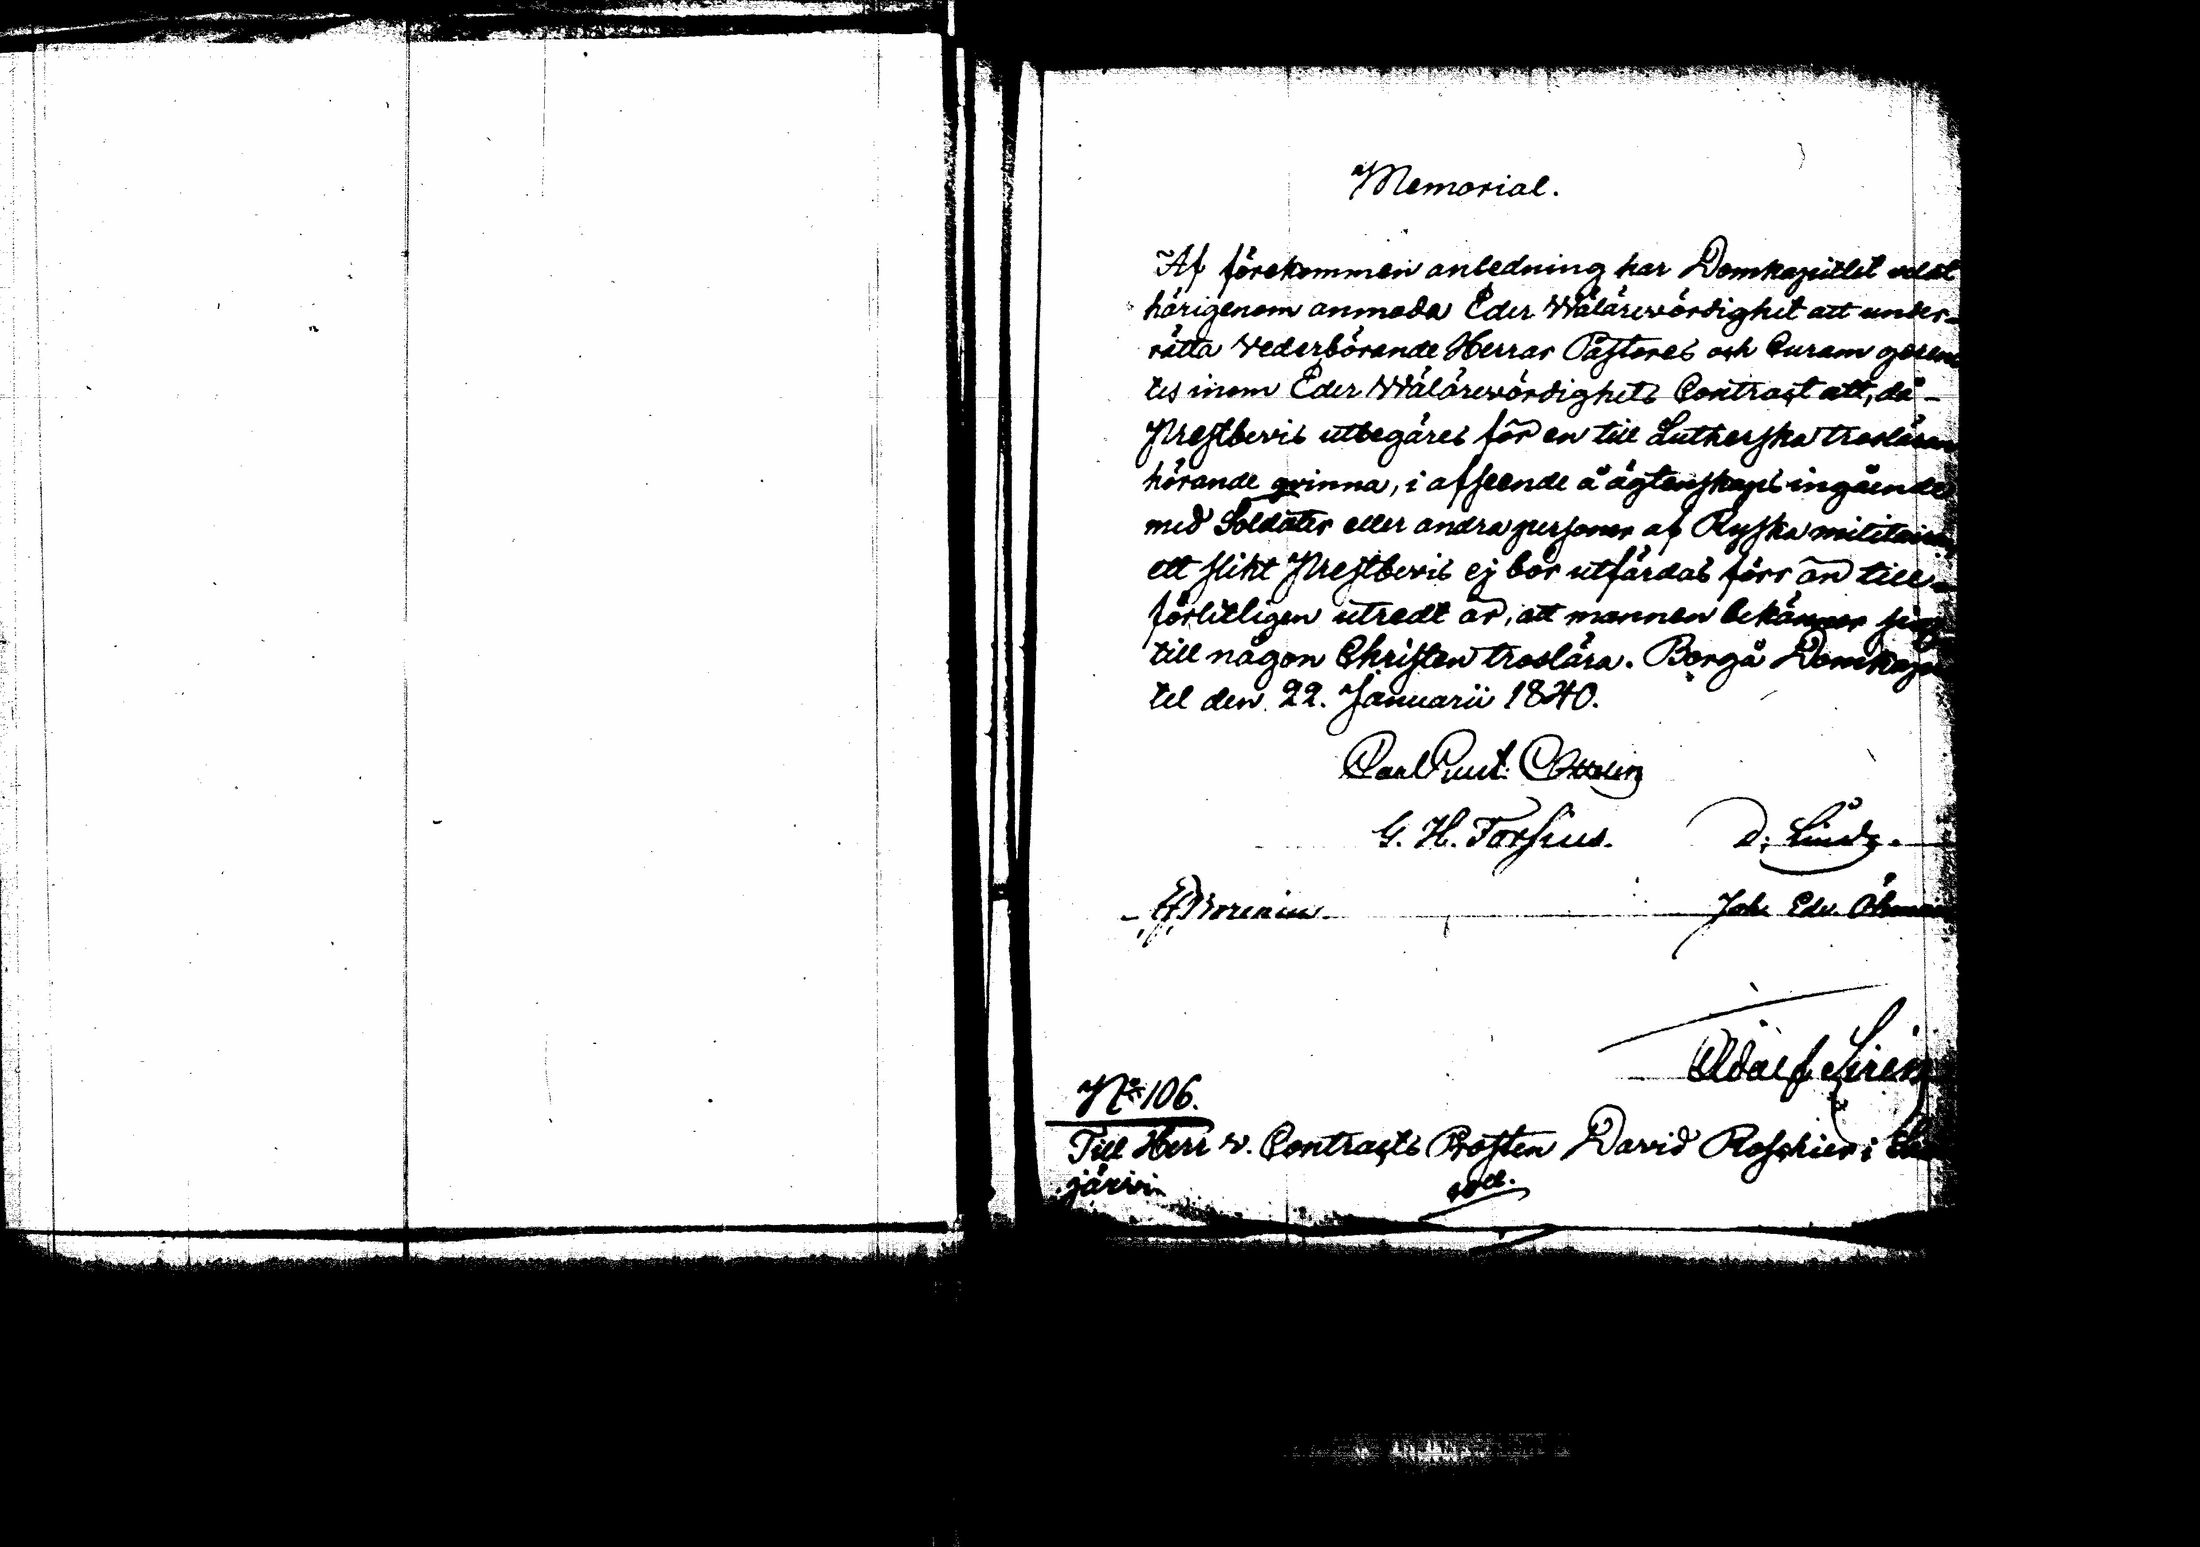 Memorial.
Af förekommen anledning har Domkapitlet velat
härigenom anmoda Eder Wälärewördighet att under-
rätta vederbörande Herrar Pastores och Curam geren
tes inom Eder Wälärewördighets Contract att, då
Prestbevis utbegäres för en till Lutherska trosläran
hörande qvinna, i afseende å ägtenskaps ingående
med Soldater eller andra personer af Ryska militairen,
ett slikt Prestbevis ej bör utfärdas förr än till-
förlitligen utredt är, att mannen bekänner sig
till någon Christen troslära. Borgå Domkapi
tel den 22. Januarii 1840.
Carl Gust. Ottelin
G. H. Forsius. D:
H Borenius Joh. Edv. Öhman
Adolf Siren
No 106.
Till Herr v. Contracts Prosten David Roschier i
järvi